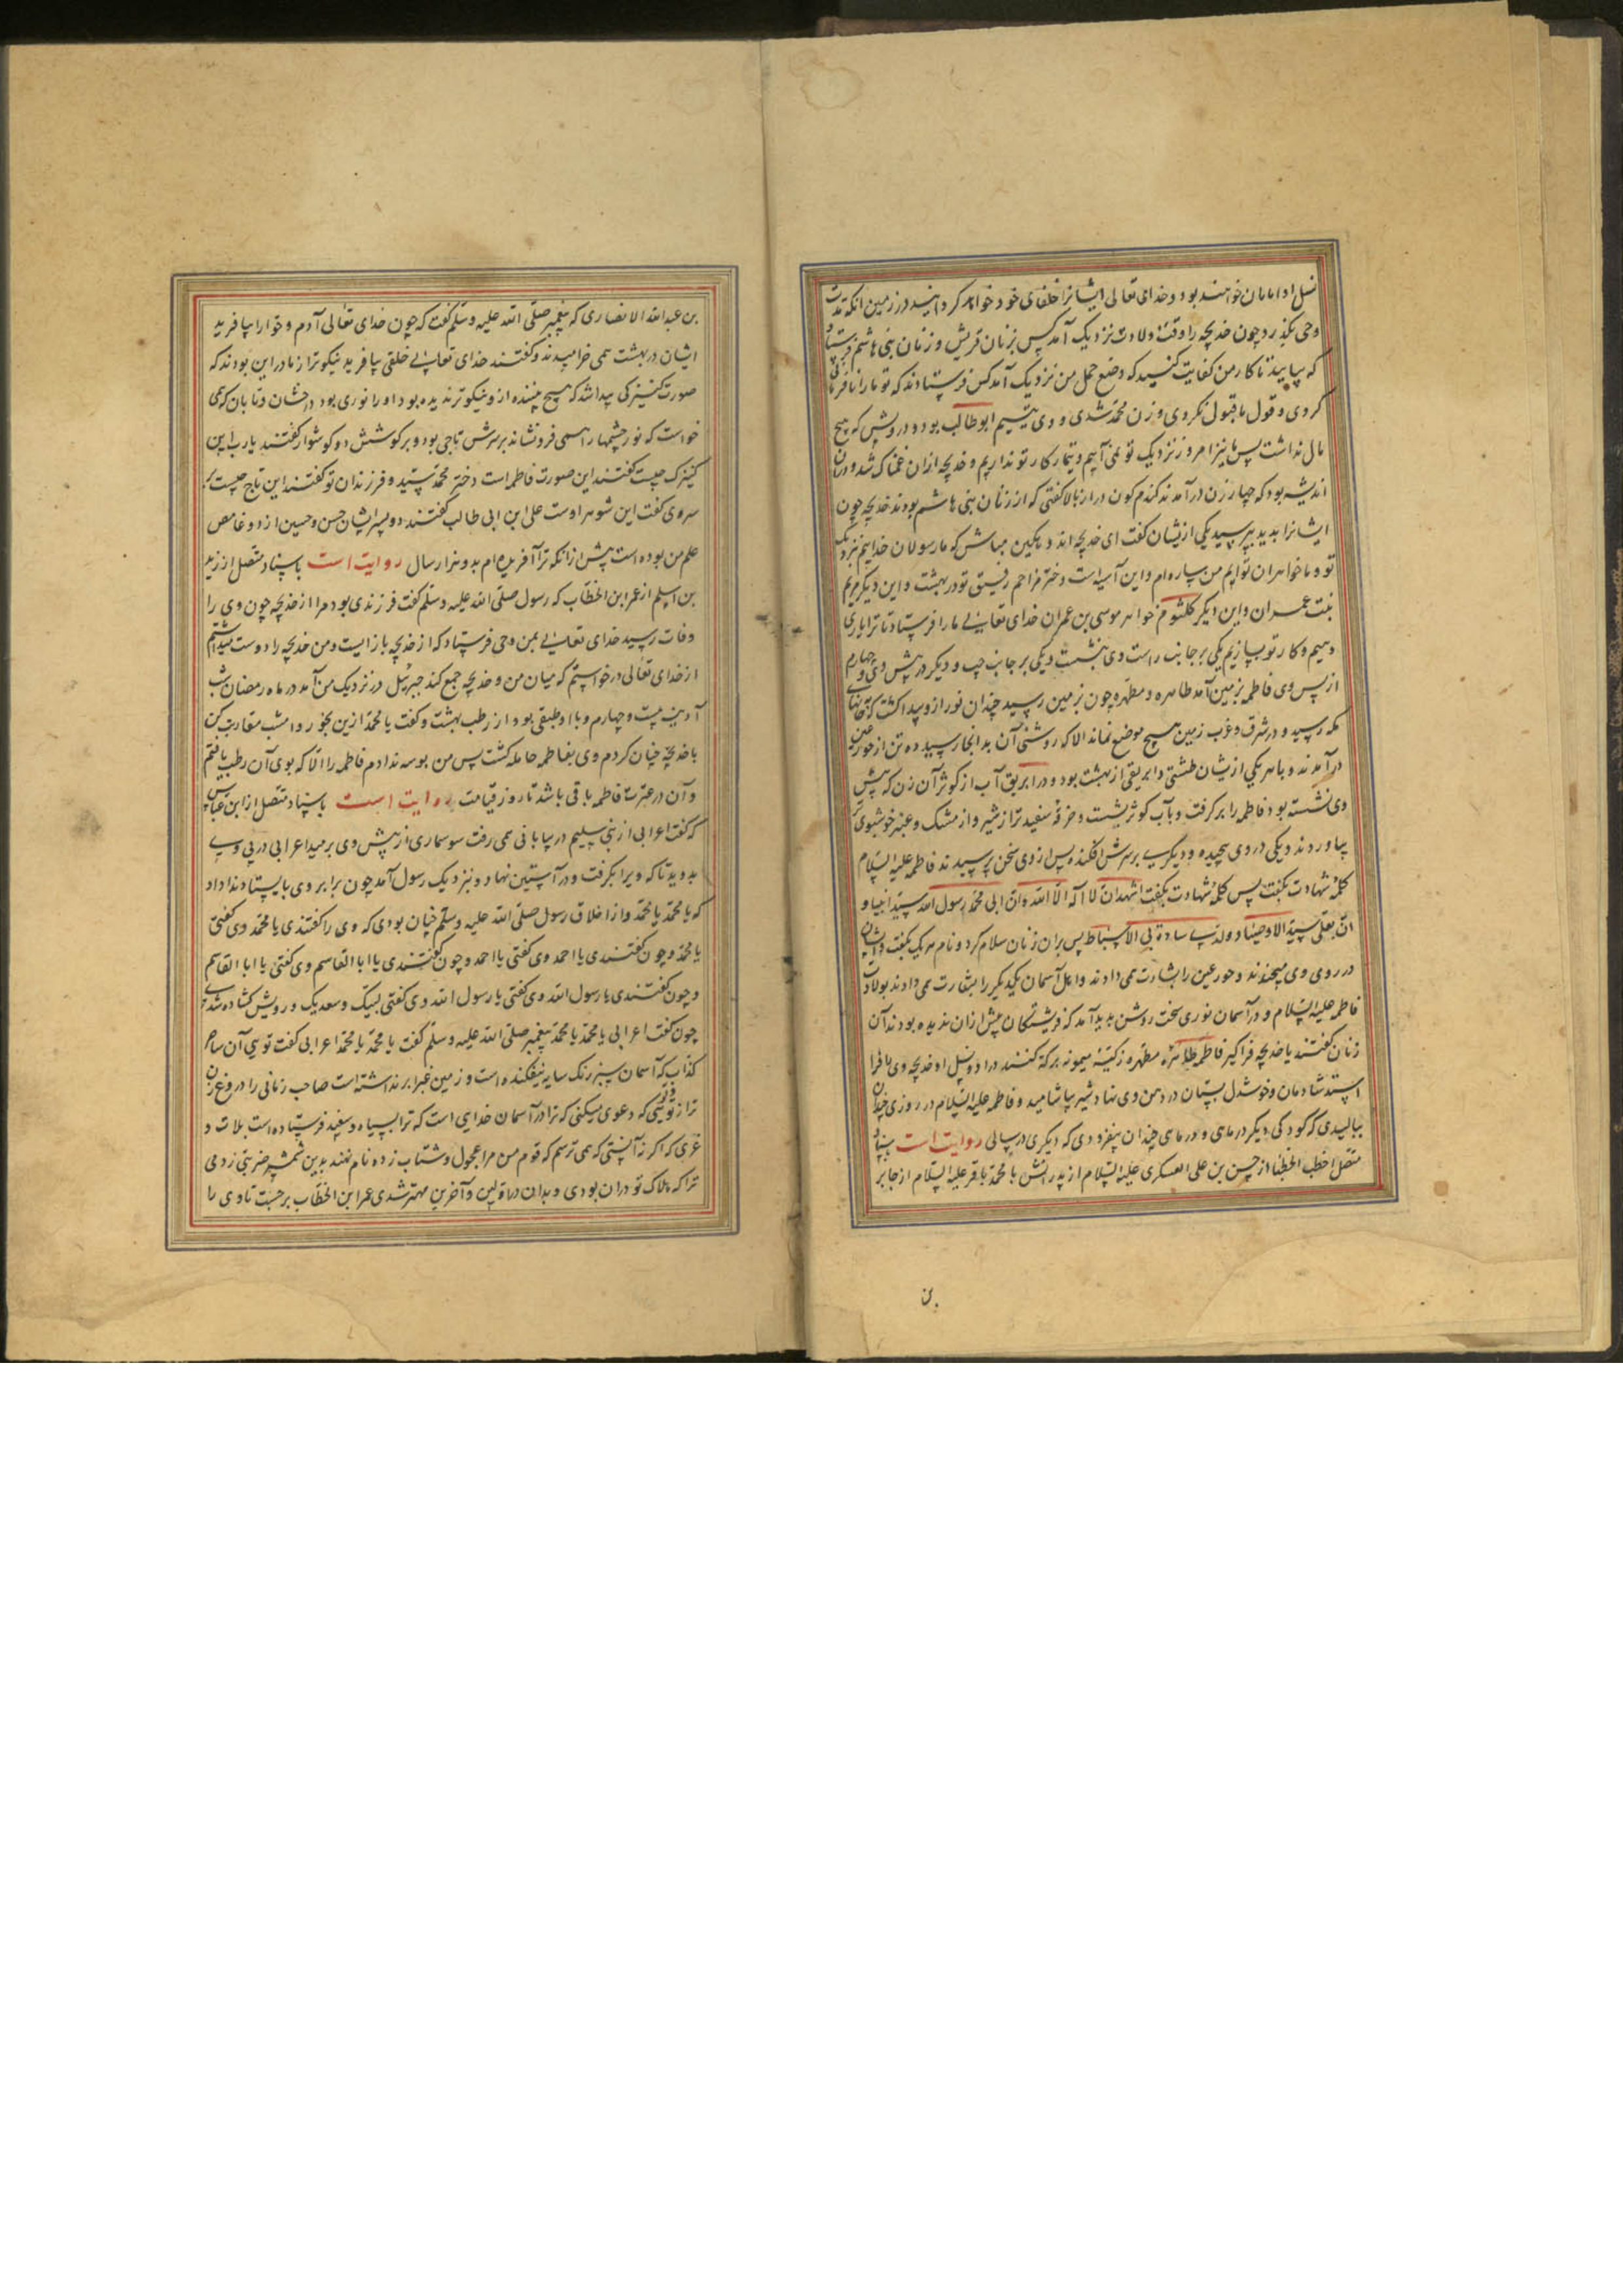 نسل او امامان خواهند بود و خدای تعالی ایشانرا خلفای خود خواهد کردانید در زمین انکه مدت
وحی بگذرد چون خدیجه را وقت ولادت نزدیک آمد کس بزنان قریش و زنان بنی هاشم فرستاد
که بیایید تا کار من کفایت کنید که وضع حمل من نزدیک آمد کس فرستادند که تو ما را نافرمانی
کردی و قول ما قبول نکردی و زن محمد شدی و وی یتیم ابوطالب بود و درویش که هیچ
مال نداشت پس ما نیز امروز نزدیک تو نمی آییم و تیمار کار تو نداریم و خدیجه ازان غمناک شد و دران
اندیشه بود که چهار زن درآمدند کندم کون دراز بالا کفتی که از زنان بنی هاشم بودند خدیجه چون
ایشانرا بدید بپرسید یکی ازیشان کفت ای خدیجه اندوهکین مباش که ما رسولان خداییم بنزدیک
تو و ما خواهران توایم من ساره ام و این آسیه است دختر مزاحم رفیق تو در بهشت و این دیکر مریم
بنت عمران و این دیکر کلثوم خواهر موسی بن عمران خدای تعالی ما را فرستاد تا ترا یاری
دهیم و کار تو بسازیم یکی بر جانب راست وی بنشست و یکی بر جانب چپ و دیکر در پیش وی و چهارم
از پس وی فاطمه بزمین آمد طاهره و مطهره چون بزمین رسید چندان نور ازو پیدا کشت که بخانهای
مکه رسید و در شرق و غرب زمین هیچ موضع نماند الا که روشنی آن بدانجا رسید ده تن از حور عین
درآمدند و با هر یکی ازیشان طشتی و ابریقی از بهشت بود و در ابریق آب از کوثر آن زن که پیش
وی نشسته بود فاطمه را بر کرفت و بآب کوثر بشست و خرقه سفیدتر از شیر و از مشک و عنبر خوشبوی تر
بیاوردند و یکی در وی پیچیده و دیکری بر سرش افکنده پس از وی سخن پرسیدند فاطمه علیها السلام
کلمه شهادت بکفت پس کلمه شهادت بکفت اشهد ان لا اله الا الله و ان ابی محمد رسول الله سید انبیا و
ان بعلی سید الاوصیا و ولدی ساده بی الاسباط پس بران زنان سلام کرد و نام هر یک بکفت و ایشان
در روی وی میخندند و حور عین را بشارت می دادند و اهل آسمان یکدیکر را بشارت می دادند بولادت
فاطمه علیها السلام و در آسمان نوری سخت روشن بدید آمد که فرشتکان پیش ازان ندیده بودند آن
زنان کفتند یا خدیجه فرا کیر فاطمه طاهره مطهره زکیه میمونه برکة کنند در او و نسل او خدیجه وی را فرا
استد شادمان و خوشدل پستان در دهن وی نهاد شیر بیاشامید و فاطمه علیها السلام در روزی چندان
ببالیدی که کودکی دیکر در ماهی و در ماهی چندان بیفزودی که دیکری در سالی روایت است باسناد
متصل اخطب الخطبا از حسن بن علی العسکری علیه السلام از پدرانش با محمد باقر علیه السلام از جابر
بن
بن عبدالله الانصاری که پیغمبر صلی الله علیه وسلم کفت که چون خدای تعالی آدم و حوا را بیافرید
ایشان در بهشت می خرامیدند و کفتند خدای تعالی خلقی بیافرید نیکوتر از ما درین بودند که
صورت کنیزکی پیدا شد که هیچ بیننده ازو نیکوتر ندیده بود او را نوری بود درخشان و تابان که می
خواست که نور چشمها را همی فرو نشاند بر سرش تاجی بود و بر کوشش دو کوشوار کفتند یا رب این
کنیزک چیست کفت این صورت فاطمه است دختر محمد سید فرزندان تو کفتند این تاج چیست بر
سر وی کفت این شوهر اوست علی ابن ابی طالب کفتند دو پسر ایشان حسن و حسین از دو غامض
علم من بوده است پیش ازانکه ترا آفریده ام بدو هزار سال روایت است باسناد متصل از زید
بن اسلم از عمر ابن الخطاب که رسول صلی الله علیه وسلم کفت فرزندی بود مرا از خدیجه چون وی را
وفات رسید خدای تعالی بمن وحی فرستاد که از خدیجه باز ایست و من خدیجه را دوست میداشتم
از خدای تعالی درخواستم که میان من و خدیجه جمع کند جبرئیل در نزدیک من آمد در ماه رمضان شب
آدینه بیست و چهارم و با او طبقی بود از رطب بهشت و کفت یا محمد ازین بخور و امشب مقاربت کن
با خدیجه چنان کردم وی بفاطمه حامله کشت پس من بوسه ندادم فاطمه را الا که بوی آن رطب یافتم
و آن در عترت فاطمه باقی باشد تا روز قیامت روایت است باسناد متصل از ابن عباس
که کفت اعرابی از بنی سلیم در بیابانی می رفت سوسماری از پیش وی برمید اعرابی در پی وی
بدوید تا که ویرا بکرفت و در آستین نهاد و بنزدیک رسول آمد چون برابر وی بایستاد ندا داد
که یا محمد یا محمد و از اخلاق رسول صلی الله علیه وسلم چنان بودی که وی را کفتندی یا محمد وی کفتی
یا محمد و چون کفتندی یا احمد وی کفتی یا احمد و چون کفتندی یا ابا القاسم وی کفتی یا ابا القاسم
و چون کفتندی یا رسول الله وی کفتی یا رسول الله وی کفتی لبیک و سعدیک و رویش کشاده شدی
چون کفت اعرابی یا محمد یا محمد پیغمبر صلی الله علیه وسلم کفت یا محمد یا محمد اعرابی کفت تویی آن ساحر
کذاب که آسمان سبز رنک سایه نیفکنده است و زمین غبرا برنداشته است صاحب زبانی را دروغ زن
تر از تو تویی که دعوی میکنی که ترا در آسمان خدایی است که ترا بسیاه و سفید فرستاده است بلات و
عزی که اکر نه آنستی که می ترسم که قوم من مرا عجول و شتاب زده نام نهند بدین شمشیر ضربتی زدمی
ترا که هلاک تو دران بودی و بدان در اولین و آخرین مهتر شدی عمر ابن الخطاب برجست تا وی را